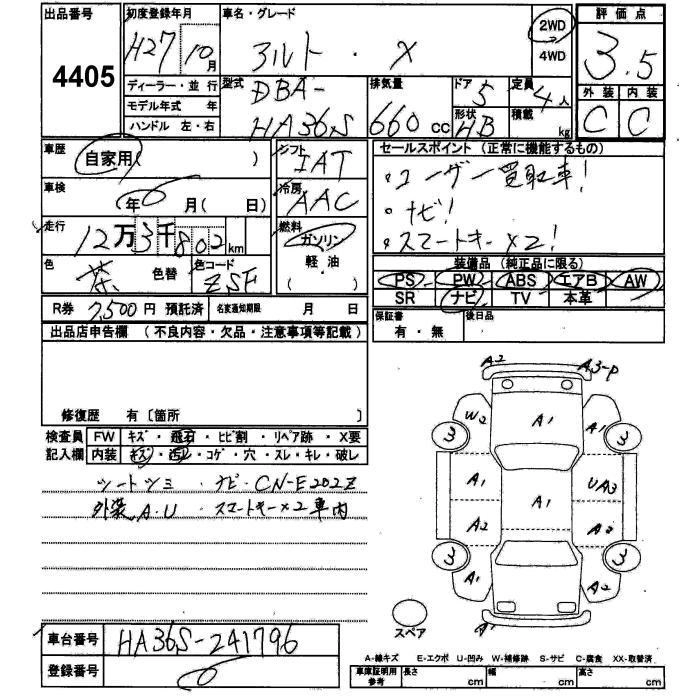 出品番号
4405
初度登録年月
H27 10月
ディーラー・並行
モデル年式 年
ハンドル 左・右
車名・グレード
アルト ・ X
2WD
4WD
型式
DBA-
HA36S
排気量
660 cc
ドア
5
形状
HB
定員
4人
積載
kg
評価点
3.5
外装 内装
C C
車歴
自家用( )
車検
年 月( 日)
走行
12万3千802km
色
茶
色替
色コード
ZSF
シフト
IAT
冷房
AAC
燃料
ガソリン
軽・油
( )
セールスポイント(正常に機能するもの)
・ユーザー買取車!
・ナビ!
・スマートキー×2!
装備品(純正品に限る)
PS PW ABS エアB AW
SR ナビ TV 本革
保証書
有・無
後日品
R券 7,500円 預託済
名変通知期限 月 日
出品店申告欄(不良内容・欠品・注意事項等記載)
修復歴 有〔箇所
検査員
記入欄
FW キズ・飛石・ヒビ割・リペア跡・X要
内装 キズ・汚れ・コゲ・穴・スレ・キレ・破レ
シートシミ・ナビ・CN-E202Z
外装A.U スマートキー×2車内
A2
A3-P
W2
A1
A1
3
3
A1
A1
UA3
A2
A2
3
3
A1
A2
A1
スペア
A-線キズ E-エクボ U-凹み W-補修跡 S-サビ C-腐食 XX-取替済
車庫証明用
参考
長さ cm
幅 cm
高さ cm
車台番号
HA36S-241796
登録番号